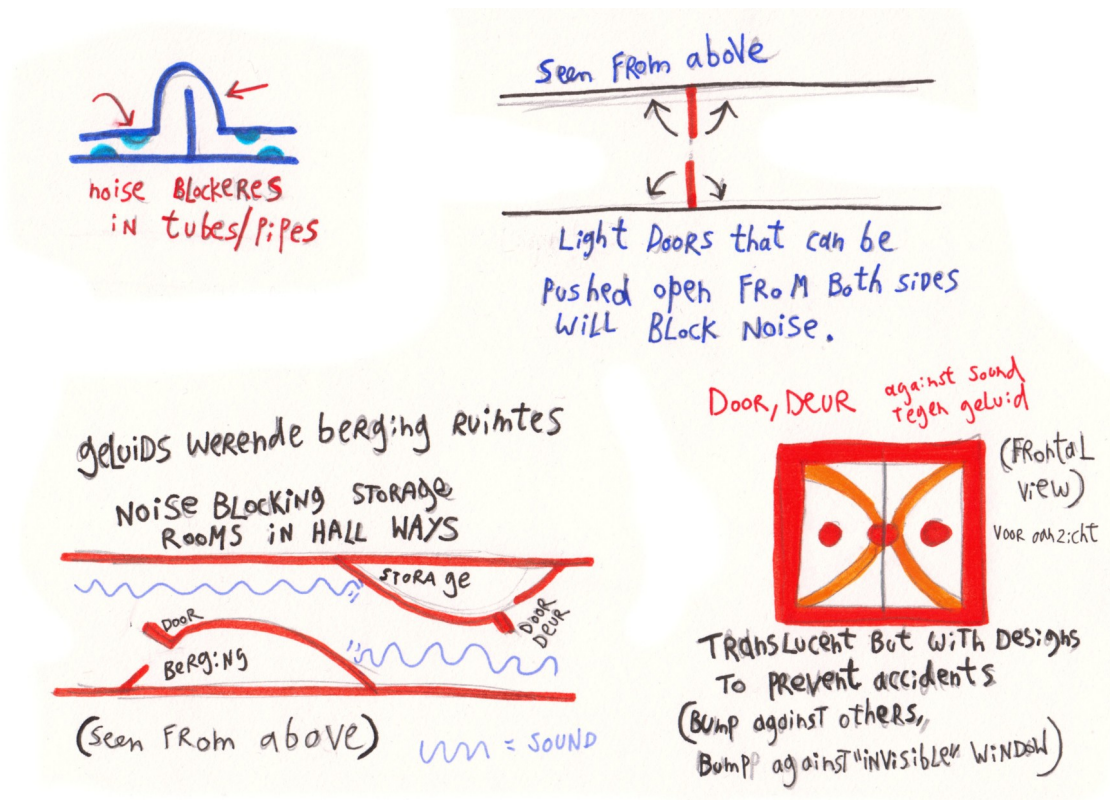 noise BLockeRes
iN tubes/pipes
Seen FRom above
Light DooRs that can be
pushed open FRoM Both sides
WiLL BLock Noise.
geLuiDs weRende beRging Ruimtes
NoiSe BLockiNg SToRAge
RooMs iN HALL WAYS
SToRAge
DooR
DeuR
DooR
BeRgiNg
(Seen FRom above)
= SouND
DooR, DeuR
against Sound
tegen geluid
(FRontaL
view)
VOOR aanzicht
TRansLucent But with Designs
To pRevent accidents
(Bump against others,
Bumpp against "invisible" WiNDoW)